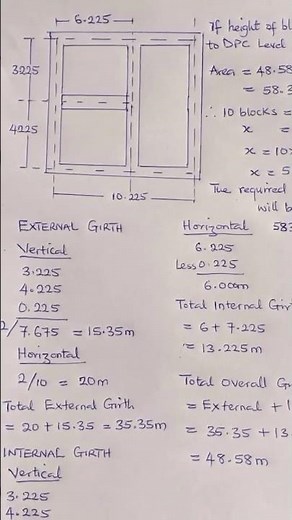 6.225
3.225
4.225
10.225
If height of bl
to DPC Level
Area = 48.58
= 58.3
∴ 10 blocks =
x =
x = 10x
x = 5
The required
will b
583
EXTERNAL GIRTH
Vertical
3.225
4.225
0.225
2/7.675 = 15.35m
Horizontal
2/10 = 20m
Total External Girth
= 20 + 15.35 = 35.35m
INTERNAL GIRTH
Vertical
3.225
4.225
Horizontal
6.225
Less 0.225
6.00m
Total Internal Gir
= 6 + 7.225
= 13.225m
Total Overall G
= External + I
= 35.35 + 13
= 48.58m